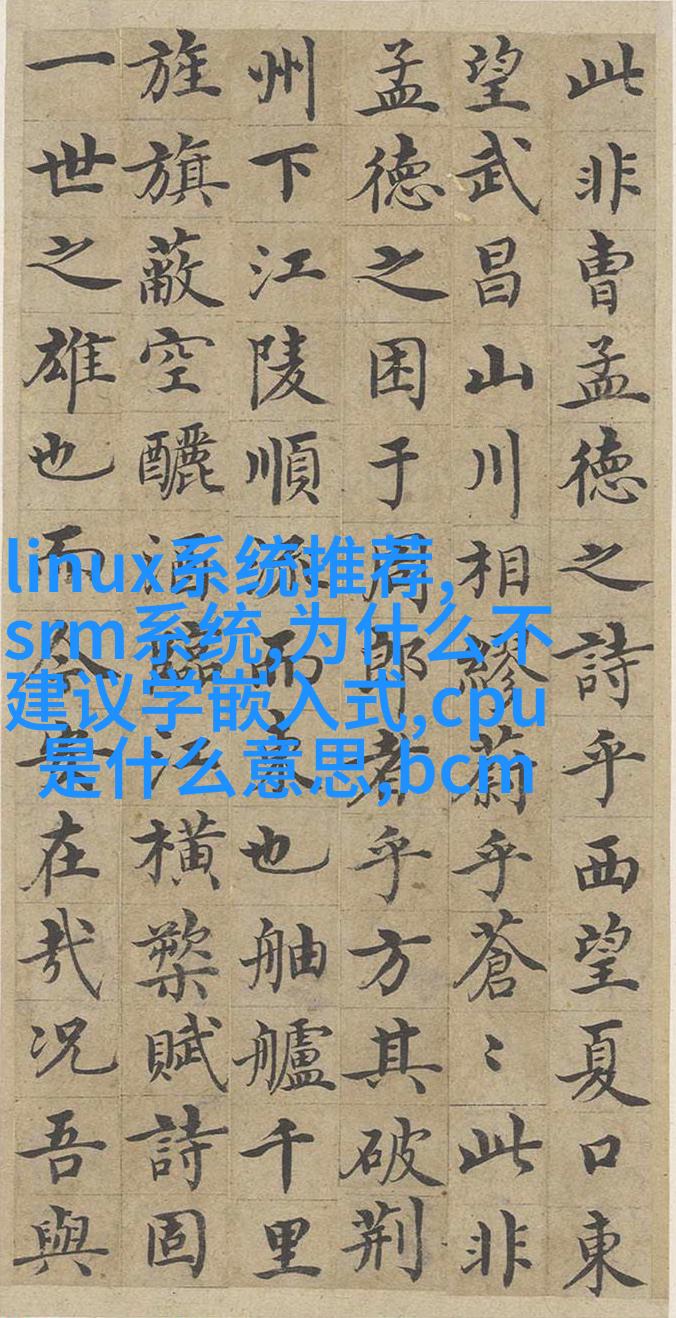 此非曹孟德之詩乎西望夏口東
望武昌山川相繆蔚乎蒼〻此非
孟德之困于周郎者乎方其破荆
州下江陵順流而東也舳艫千里
旌旗蔽空釃酒臨江橫槊賦詩固
一世之雄也而今安在哉况吾與
linux系统推荐,
srm系统,为什么不
建议学嵌入式,cpu
是什么意思,bcm